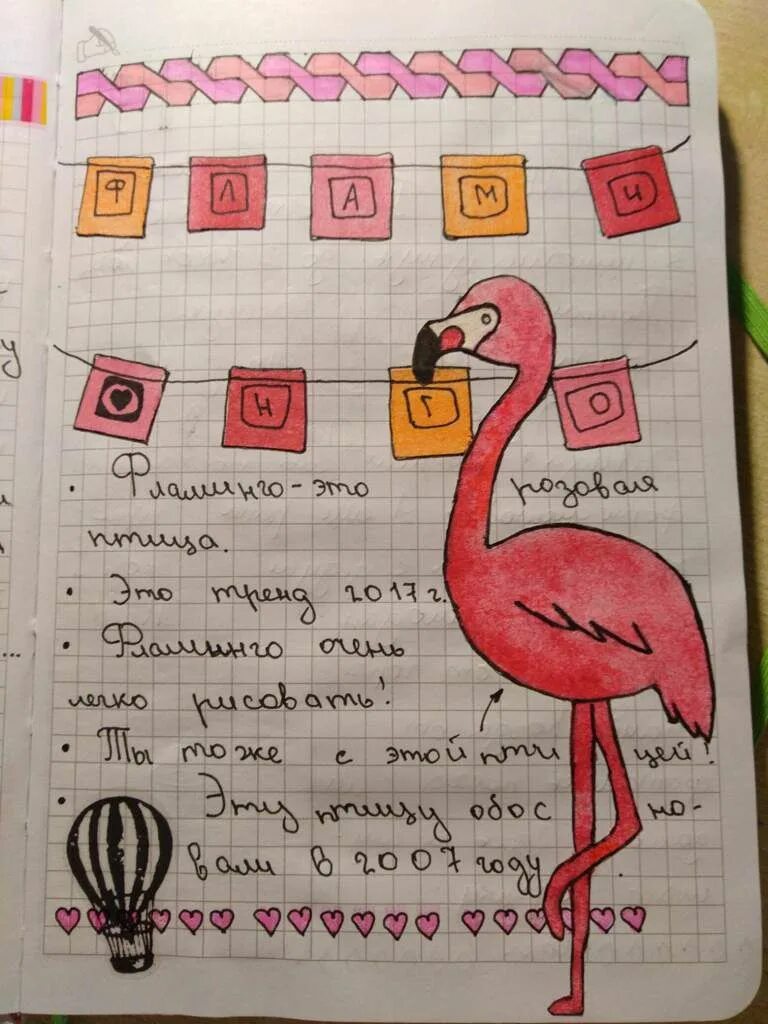 ФЛАМИ
НГО
• Фламинго-это розовая
птица.
• Это тренд 2017 г.
• Фламинго очень
легко рисовать!
• Ты тоже с этой пти цей!
• Эту птицу обос но-
вали в 2007 году.
у
...